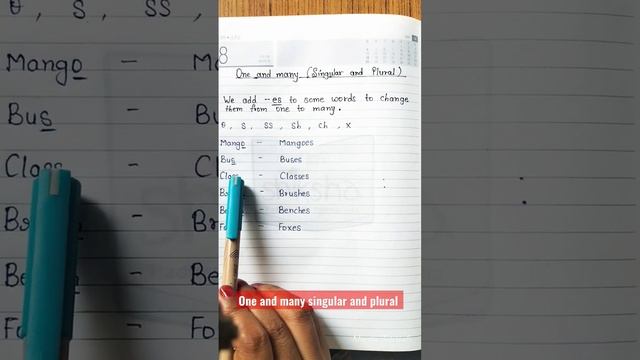 8
One and many (Singular and Plural)
We add -es to some words to change
them from one to many.
o, s, ss, sh, ch, x
Mango - Mangoes
Bus - Buses
Class - Classes
- Brushes
- Benches
- Foxes
One and many singular and plural